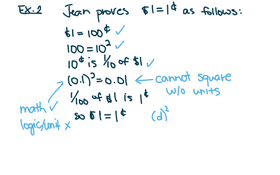 Ex. 2 Jean proves $1=1¢ as follows:
$1 = 100¢ ✓
100 = 10² ✓
10¢ is 1/10 of $1 ✓
(0.1)² = 0.01 ← cannot square w/o units
1/100 of $1 is 1¢
so $1 = 1¢ (¢)²
math ✓
logic/unit x